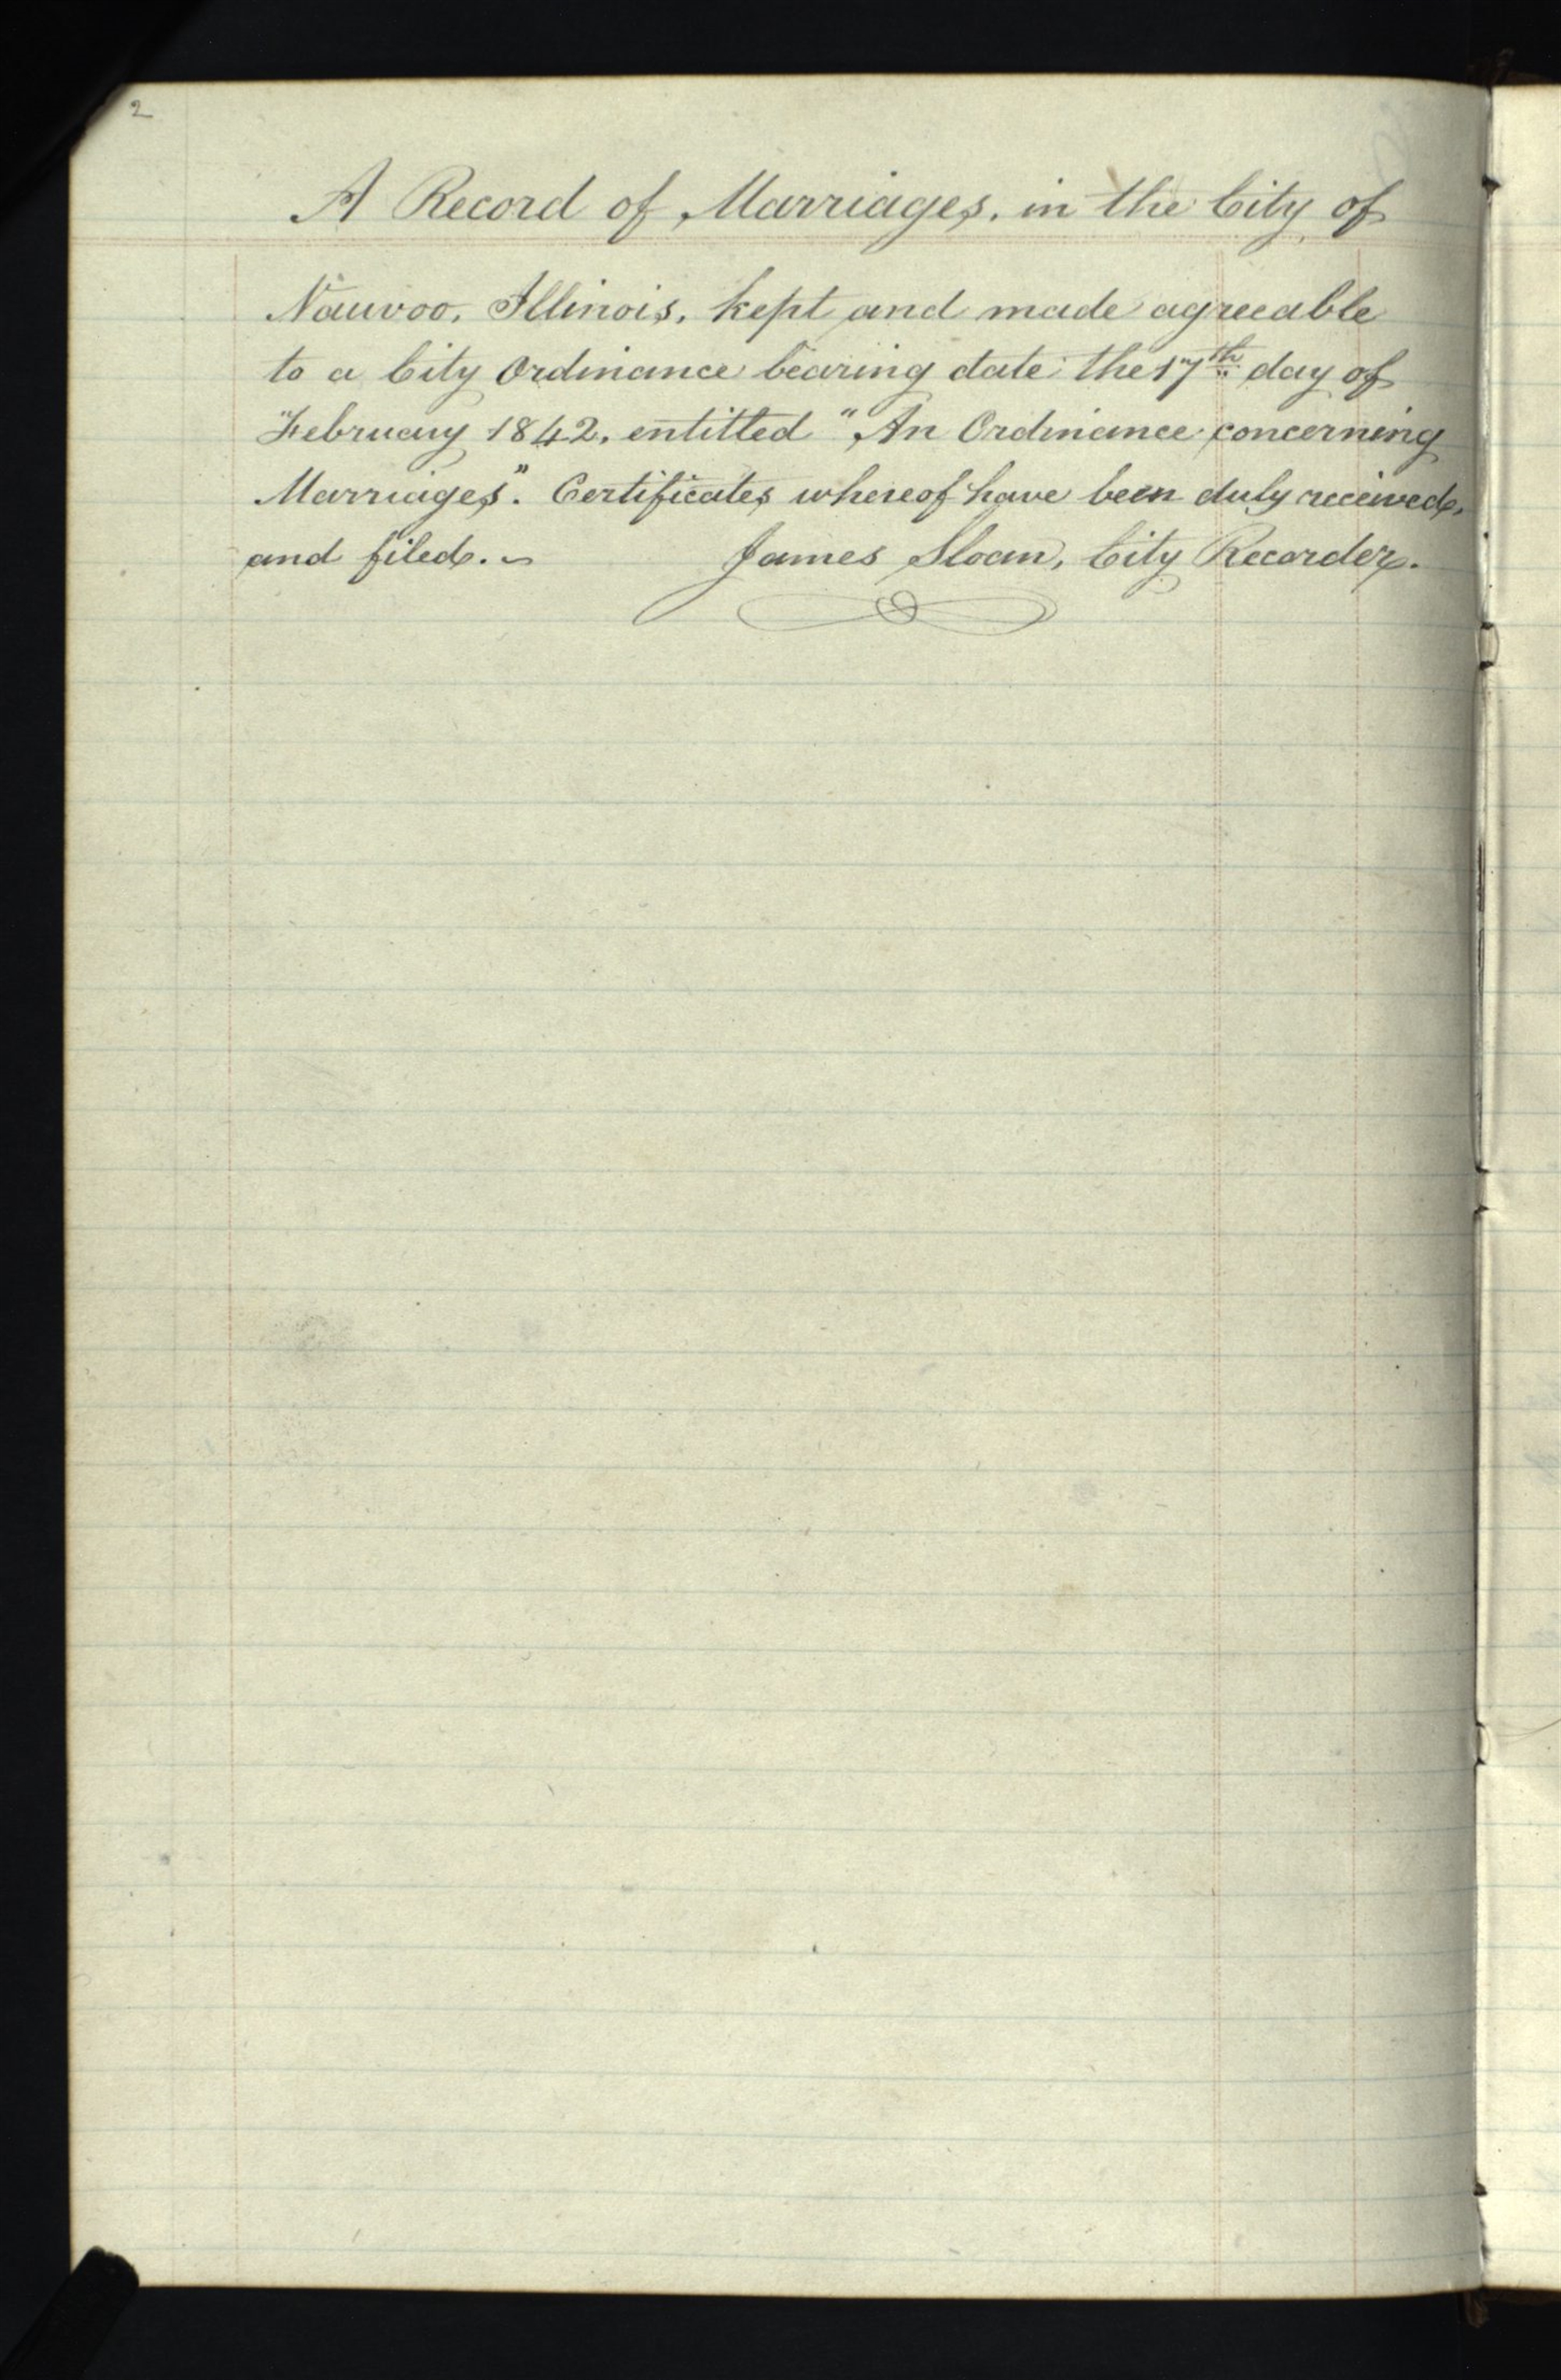 2
A Record of Marriages, in the City of
Nauvoo, Illinois, kept and made agreeable
to a City Ordinance bearing date the 17th day of
February 1842, entitled "An Ordinance concerning
Marriages". Certificates whereof have been duly received,
and filed. ~ James Sloan, City Recorder.